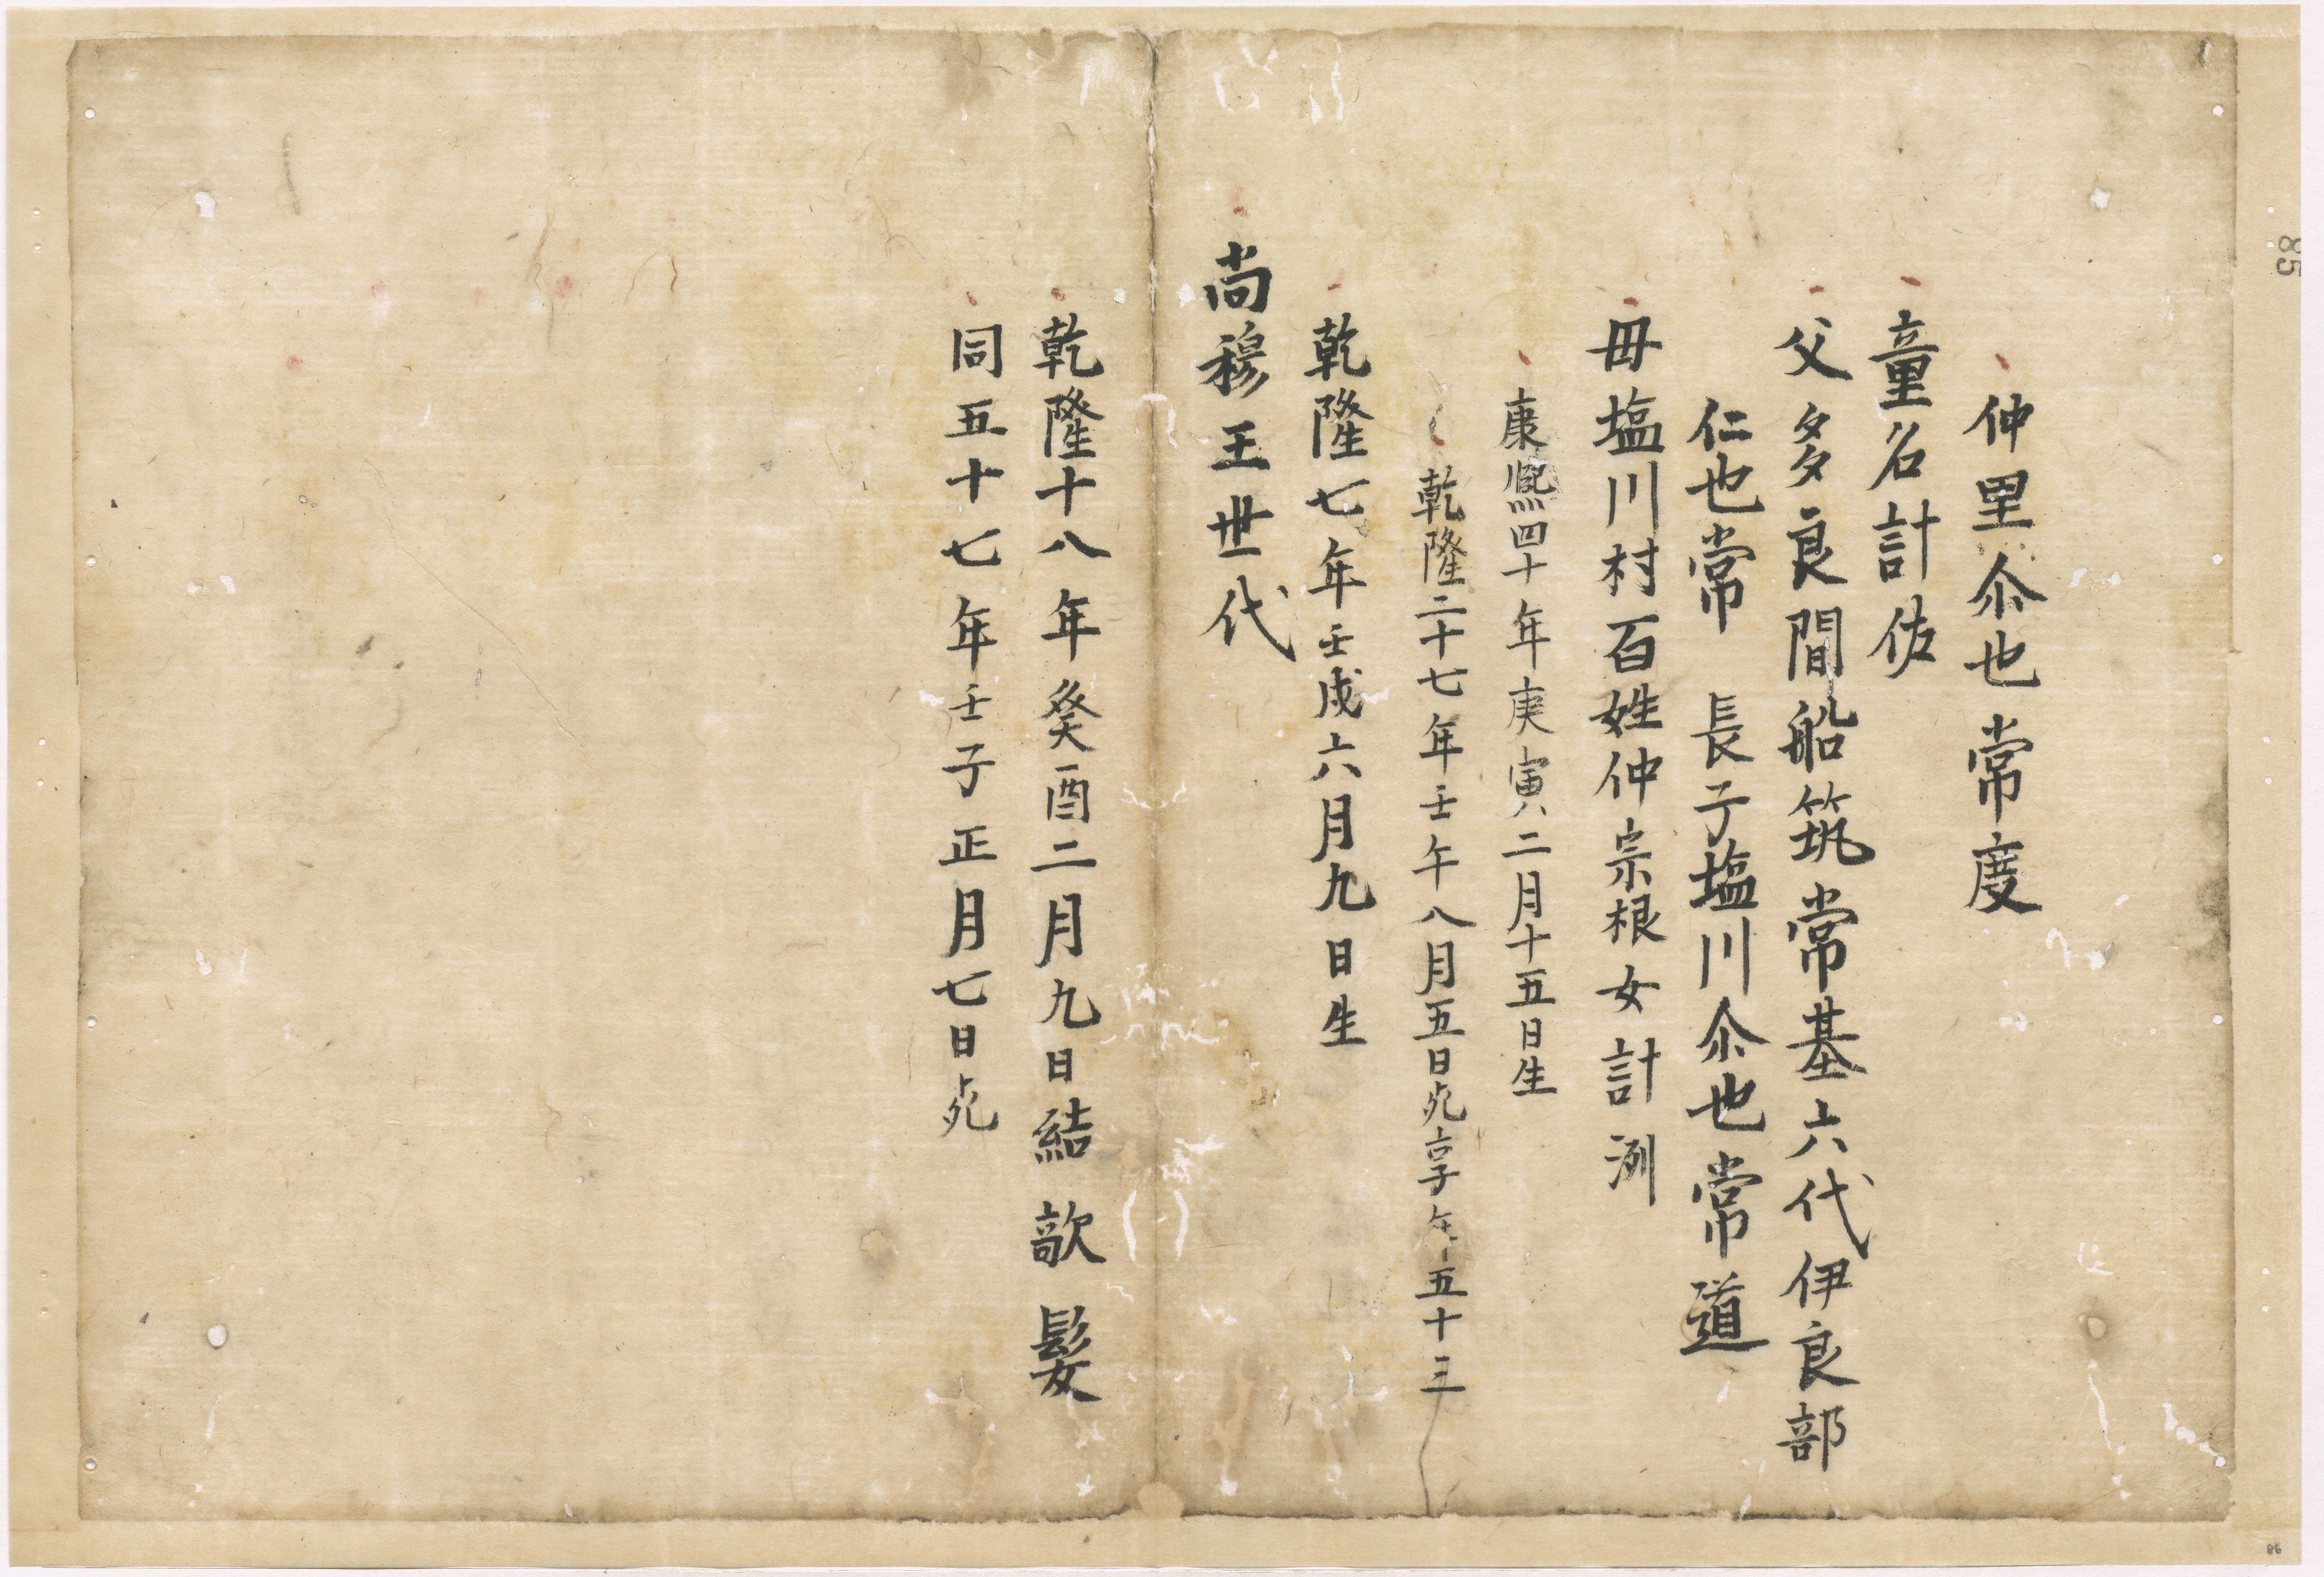 仲里尒也常度
童名計佐
父多良間船筑常基六代伊良部
仁也常 長子塩川尒也常道
毋塩川村百姓仲宗根女計洌
康熈四十年庚寅二月十五日生
乾隆二十七年壬午八月五日死享年五十三
乾隆七年壬戌六月九日生
尚穆王世代
乾隆十八年癸酉二月九日結歆髮
同五十七年壬子正月七日死
85
86